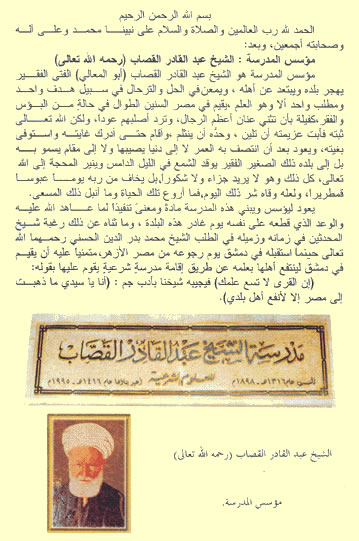 بسم الله الرحمن الرحيم
الحمد لله رب العالمين والصلاة والسلام على نبينا محمد وعلى آله
وصحابته أجمعين، وبعد:
مؤسس المدرسة : الشيخ عبد القادر القصاب (رحمه الله تعالى)
مؤسس المدرسة هو الشيخ عبد القادر القصاب (أبو المعالي) الفتى الفقير
يهجر بلده ويبتعد عن أهله ، ويمعن في الحل والترحال في سبيل هدف واحد
ومطلب واحد ألا وهو العلم ،يقيم في مصر السنين الطوال في حالةٍ من البؤس
والفقر،كفيلة بأن تثني عنان أعظم الرجال، وترد أصلبهم عوداً، ولكن الله تعالى
ثبته فأبت عزيمته أن تلين ، وحدُّه أن ينثلم ،وأقام حتى أدرك غايته واستوفى
بغيته، ويعود بعد أن انتصف به العمر لا إلى دنيا يصيبها ولا إلى مقام يسمو به
بل إلى بلده ذلك الصغير الفقير يوقد الشمع في الليل الدامس وينير المحجة إلى الله
تعالى، كل ذلك وهو لا يريد جزاء ولا شكوراً،بل يخاف من ربه يوماً عبوساً
قمطريراً، ولعله وقاه شر ذلك اليوم،فما أروع تلك الحياة وما أنبل ذلك المسعى.
يعود ليؤسس ويبني هذه المدرسة مادةً ومعنىً تنفيذاً لما عاهد الله عليه
والوعدِ الذي قطعه على نفسه يوم غادر هذه البلدة ، وما ثناه عن ذلك رغبة شيخ
المحدثين في زمانه وزميله في الطلب الشيخ محمد بدر الدين الحسني رحمهما الله
تعالى حينما استقبله في دمشق يوم رجوعه من مصر الأزهر،متمنياً عليه أن يقيم
في دمشق لينتفع أهلها بعلمه عن طريق إقامة مدرسةٍ شرعيةٍ يقوم عليها بقوله:
(إن القرى لا تسع علمك) فيجيبه شيخنا بأدب جم : (أنا يا سيدي ما ذهبت
إلى مصر إلا لأنفع أهل بلدي).
مدرسة الشيخ عبد القادر القصاب
للعلوم الشرعية
عام ١٣١٦هـ - ١٨٩٨م
عام ١٤١٦هـ - ١٩٩٥م
الشيخ عبد القادر القصاب (رحمه الله تعالى)
مؤسس المدرسة.